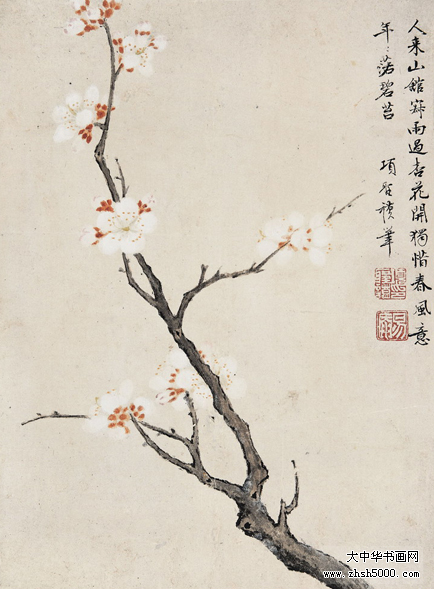 人来山馆寂雨过杏花開獨惜春風意
年〻落碧苔
項聖謨筆
大中华书画网
www.zhsh5000.com